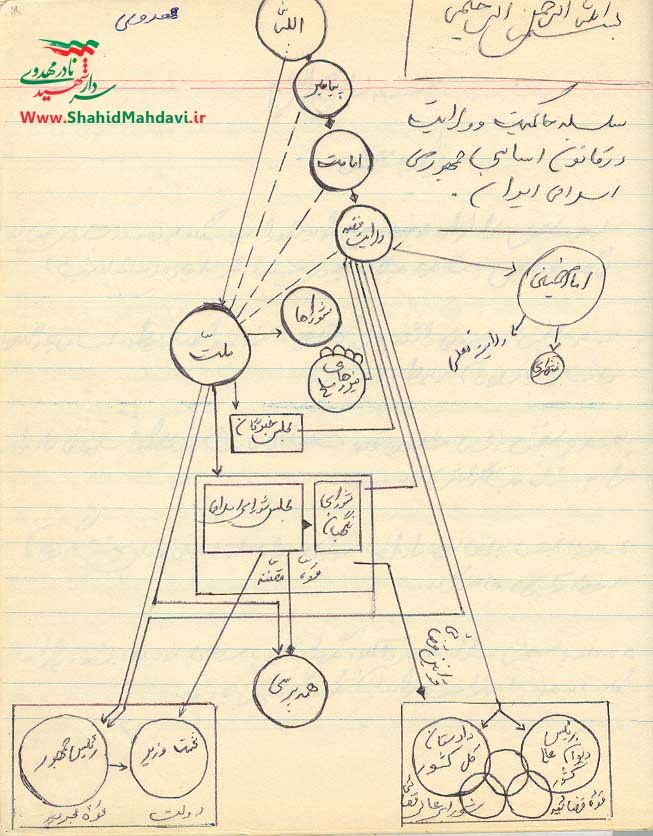 سردار شهید نادر مهدوی
www.ShahidMahdavi.ir
سلسله حاکمیت و ولایت
در قانون اساسی جمهوری
اسلامی ایران.
اللّه
پیامبر
امامت
ولایت فقیه
امام خمینی
ولایت فعلی
منتظری
شوراها
ملّت
نیروهای مسلح
مجلس خبرگان
مجلس شورای اسلامی
شورای نگهبان
قوّه مقننّه
همه پرسی
رئیس جمهور
نخست وزیر
قوّه مجریه
دولت
دادستان کل کشور
رئیس دیوان عالی کشور
شورای عالی قضائی
قوّه قضائیه